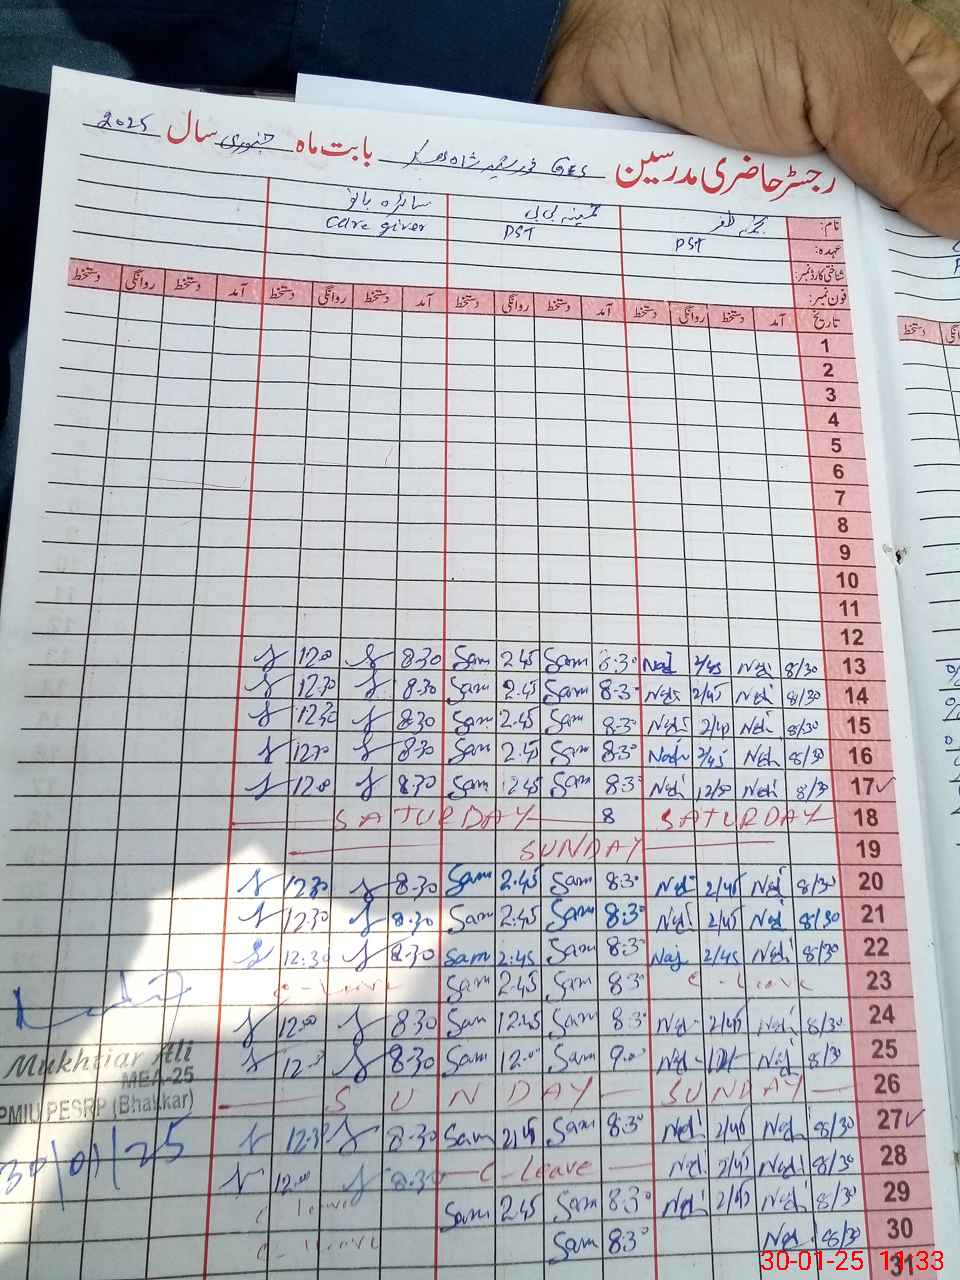 رجسٹر حاضری مدرسین GES بابت ماہ جنوری سال 2025
نام: نجمہ ظفر ثمینہ بی بی سائرہ بانو
عہدہ: PST PST Care giver
شناختی کارڈ نمبر:
فون نمبر:
تاریخ آمد دستخط روانگی دستخط آمد دستخط روانگی دستخط آمد دستخط روانگی دستخط آمد دستخط روانگی دستخط
1
2
3
4
5
6
7
8
9
10
11
12
12:00 8:30 Sam 2:45 Sam 8:30 Naj 2/45 Naj 8/30 13
12:30 8:30 Sam 2:45 Sam 8:30 Naj 2/45 Naj 8/30 14
12:30 8:30 Sam 2:45 Sam 8:30 Naj 2/45 Naj 8/30 15
8:30 Sam 2:45 Sam 8:30 Naj 2/45 Naj 8/30 16
12:00 8:30 Sam Sam 8:30 Naj 12/30 Naj 8/30 17
SATURDAY 8 SATURDAY 18
SUNDAY 19
12:30 8:30 Sam 2:45 Sam 8:30 Naj 2/45 Naj 8/30 20
12:30 8:30 Sam 2:45 Sam 8:30 Naj 2/45 Naj 8/30 21
12:30 8:30 Sam 2:45 Sam 8:30 Naj 2/45 Naj 8/30 22
C-Leave Sam 2:45 Sam 8:30 C-Leave 23
12:00 8:30 Sam 12:45 Sam 8:30 Naj 2/45 Naj 8/30 24
8:30 Sam 12:00 Sam 9:00 Naj Naj 8/30 25
SUNDAY SUNDAY 26
12:30 8:30 Sam 2:45 Sam 8:30 Naj 2/45 Naj 8/30 27
12:00 8:30 C-Leave Naj 2/45 Naj 8/30 28
C Leave Sam 2:45 Sam 8:30 Naj 2/45 Naj 8/30 29
C-Leave Sam 8:30 Naj 8/30 30
31
Mukhtiar Ali
MEA-25
PMIU PESRP (Bhakkar)
30/01/25
30-01-25 11:33